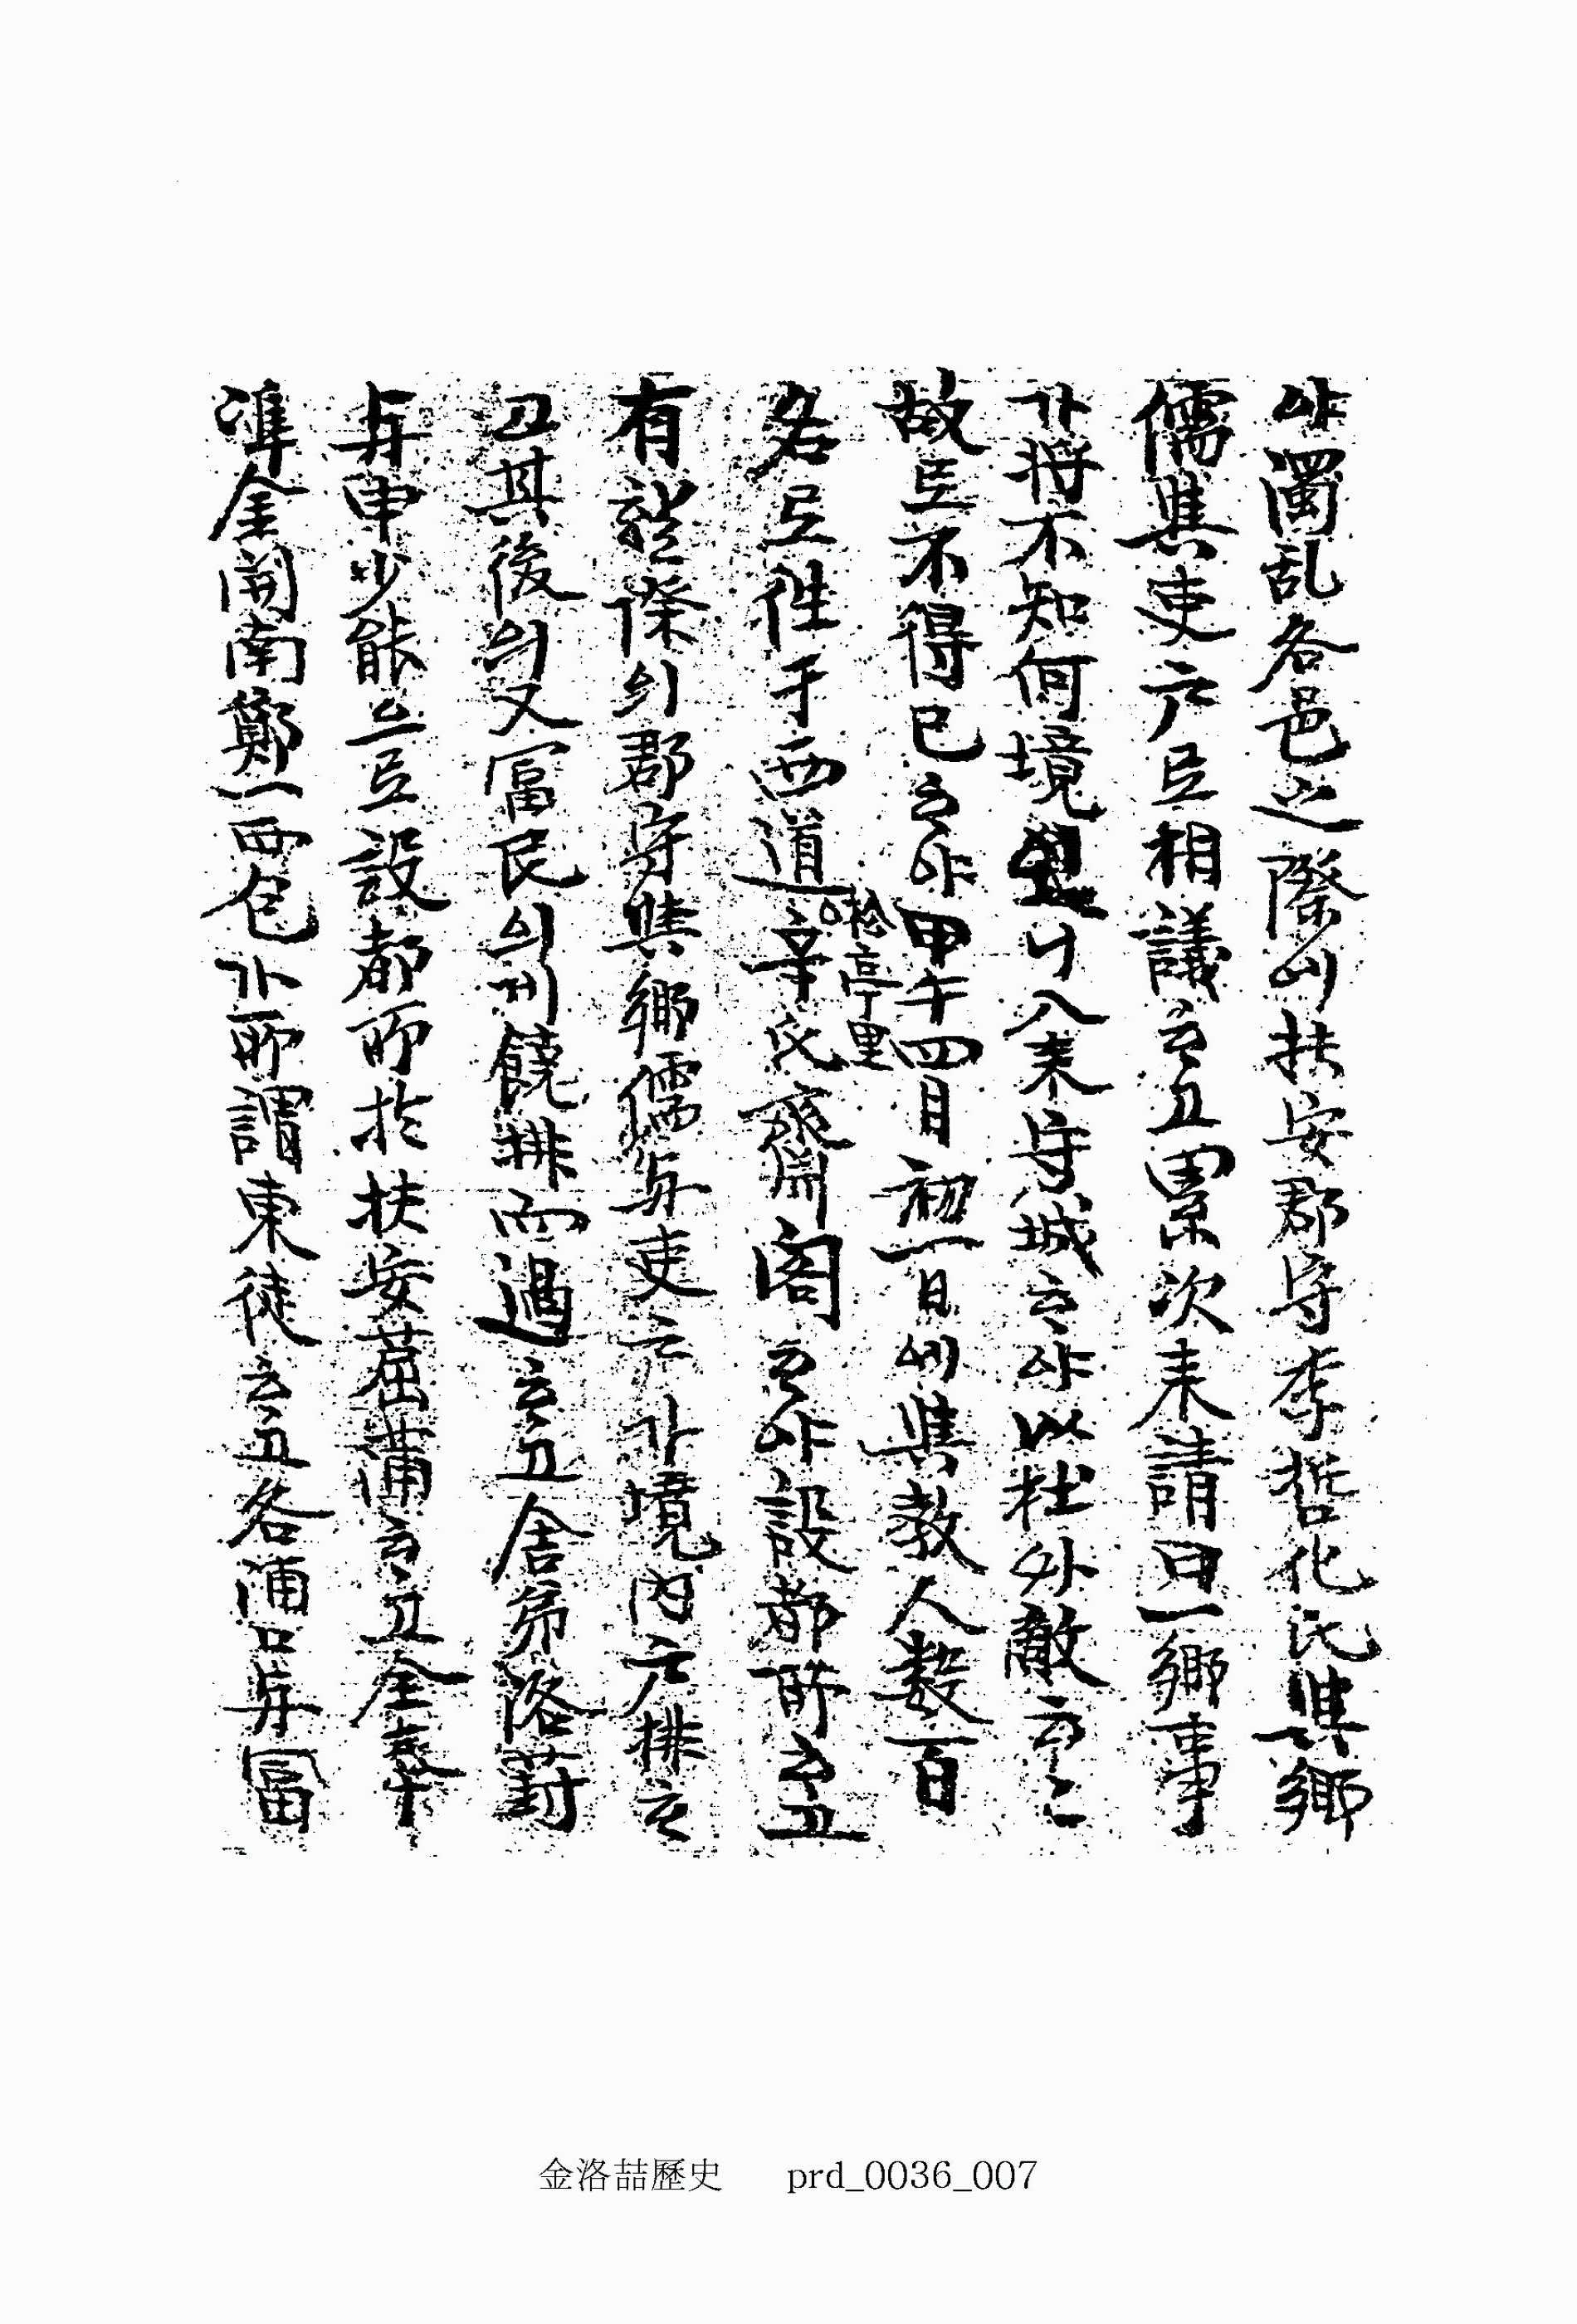 야乱各邑之際에扶安郡守李哲化氏與鄕
儒與吏户로相議하고累次来請曰一鄕事
가将不知何境니入来守城하야以杜外敵하
故로不得已하야甲午四月初一日에與敎人數百
名로往于西道辛氏齋閣하야設都所하고
松亭里
有際이郡守與鄕儒与吏가境內户排하
고其後의又富民의게饒排而過하고舍弟洛葑
与申少能으로設都所於扶安茁浦하고全琫
準金開南鄭一西包가所謂東徒하고各浦口与富
金洛喆歷史 prd_0036_007